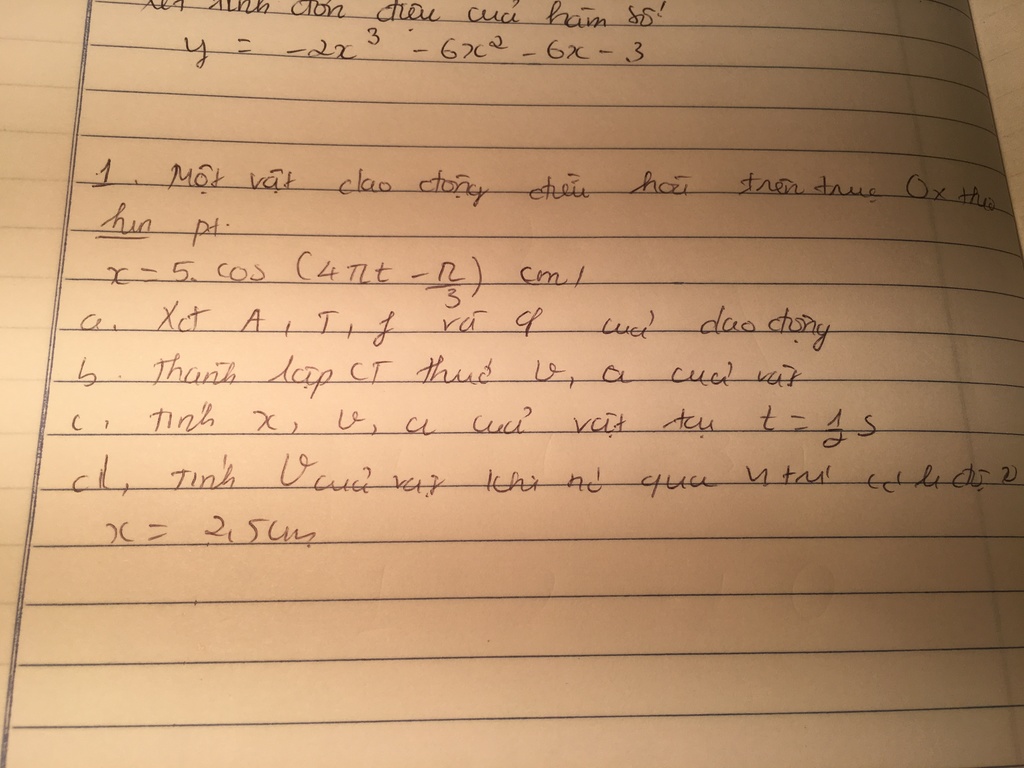 xét tính đơn điệu của hàm số
y = -2x³ - 6x² - 6x - 3
1. Một vật dao động điều hoà trên trục Ox theo
hm pt:
x = 5.cos (4πt - π/3) cm,
a. Xđ A, T, f và φ của dao động
b. Thành lập CT thức v, a của vật
c. Tính x, v, a của vật tại t = 1/ s
d, tính v của vật khi nó qua vị trí có li độ
x = 2,5cm